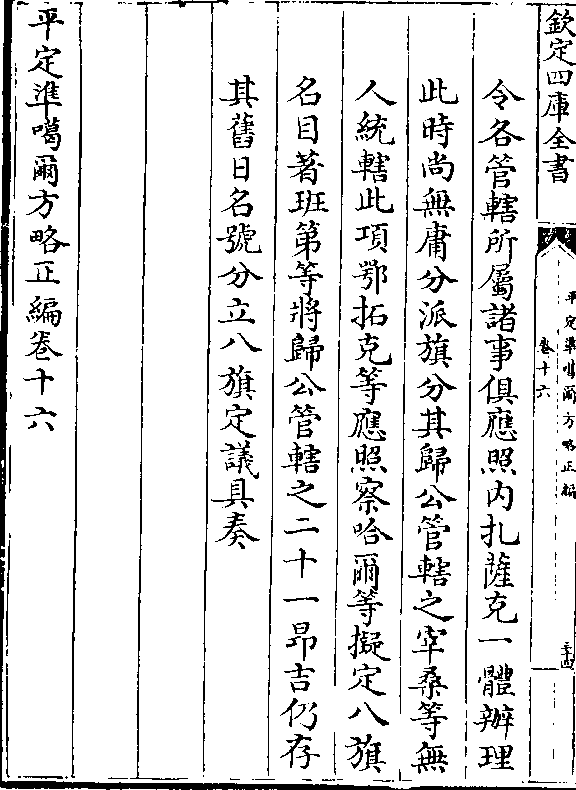 欽定四庫全書
平定準噶爾方略正編
卷十六
三十四
令各管轄所屬諸事俱應照内扎薩克一體辦理
此時尚無庸分派旗分其歸公管轄之宰桑等無
人統轄此項鄂拓克等應照察哈爾等擬定八旗
名目著班第等將歸公管轄之二十一昂吉仍存
其舊日名號分立八旗定議具奏
平定準噶爾方略正編卷十六